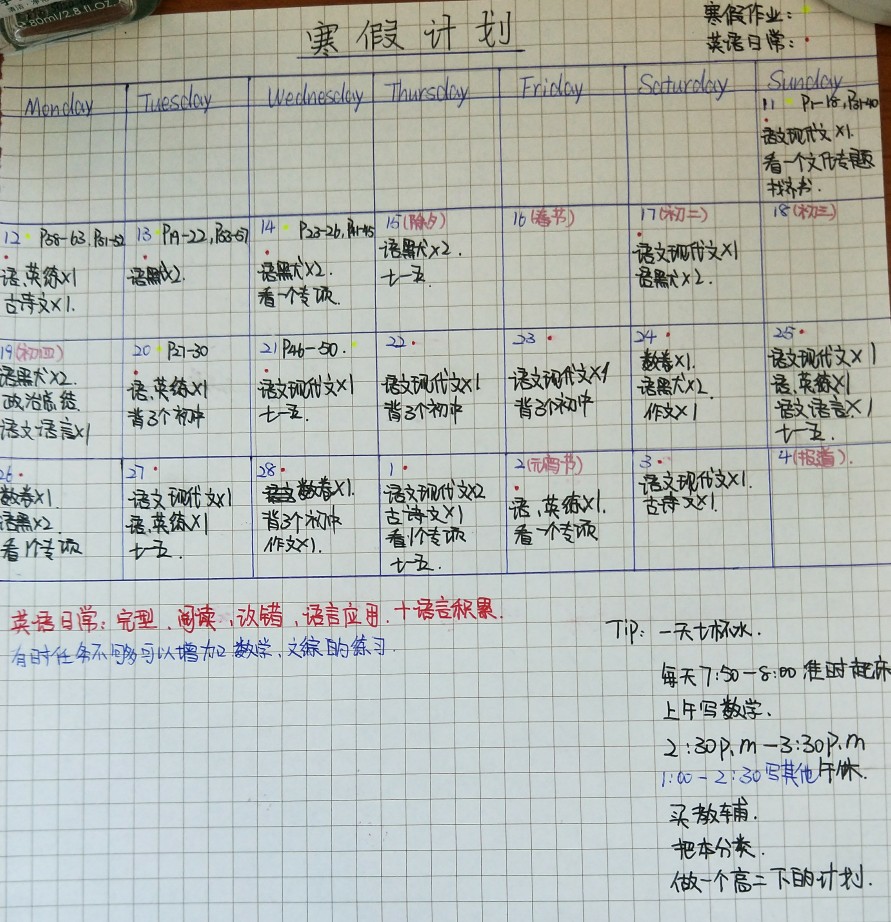 80ml/2.8 fl.OZ.
寒假计划
寒假作业:
英语日常:
Monday Tuesday Wednesday Thursday Friday Saturday Sunday
11 P1-18, P31-40
语文现代文×1.
看一个文化专题
找齐书.
12 P58-63, P51-52
语、英练×1
古诗文×1.
13 P19-22, P53-57
语黑犬×2.
14 P23-26, P41-45
语黑犬×2.
看一个专项.
15(除夕)
语黑犬×2.
七一五.
16(春节)
17(初二)
语文现代文×1
语黑犬×2.
18(初三)
19(初四)
语黑犬×2.
政治总结.
语文语言×1
20 P27-30
语、英练×1
背3个初中
21 P46-50.
语文现代文×1
七一五.
22
语文现代文×1
背3个初中
23
语文现代文×1
背3个初中
24
数卷×1.
语黑犬×2
作文×1
25
语文现代文×1
语、英练×1
语文语言×1
七一五.
26
数卷×1
语黑×2
看1个专项
27
语文现代文×1
语、英练×1
七一五.
28
数卷×1.
背3个初中
作文×1.
1
语文现代文×2
古诗文×1
看1个专项
七一五.
2(元宵节)
语、英练×1.
看一个专项
3
语文现代文×1.
古诗文×1.
4(报道).
英语日常: 完型、阅读、改错、语言应用.十语言积累.
有时任务不够可以增加数学、文综的练习.
Tip: 一天七杯水.
每天7:50-8:00准时起床
上午写数学.
2:30p.m-3:30p.m
1:00-2:30写其他 午休.
买教辅.
把本分类.
做一个高二下的计划.